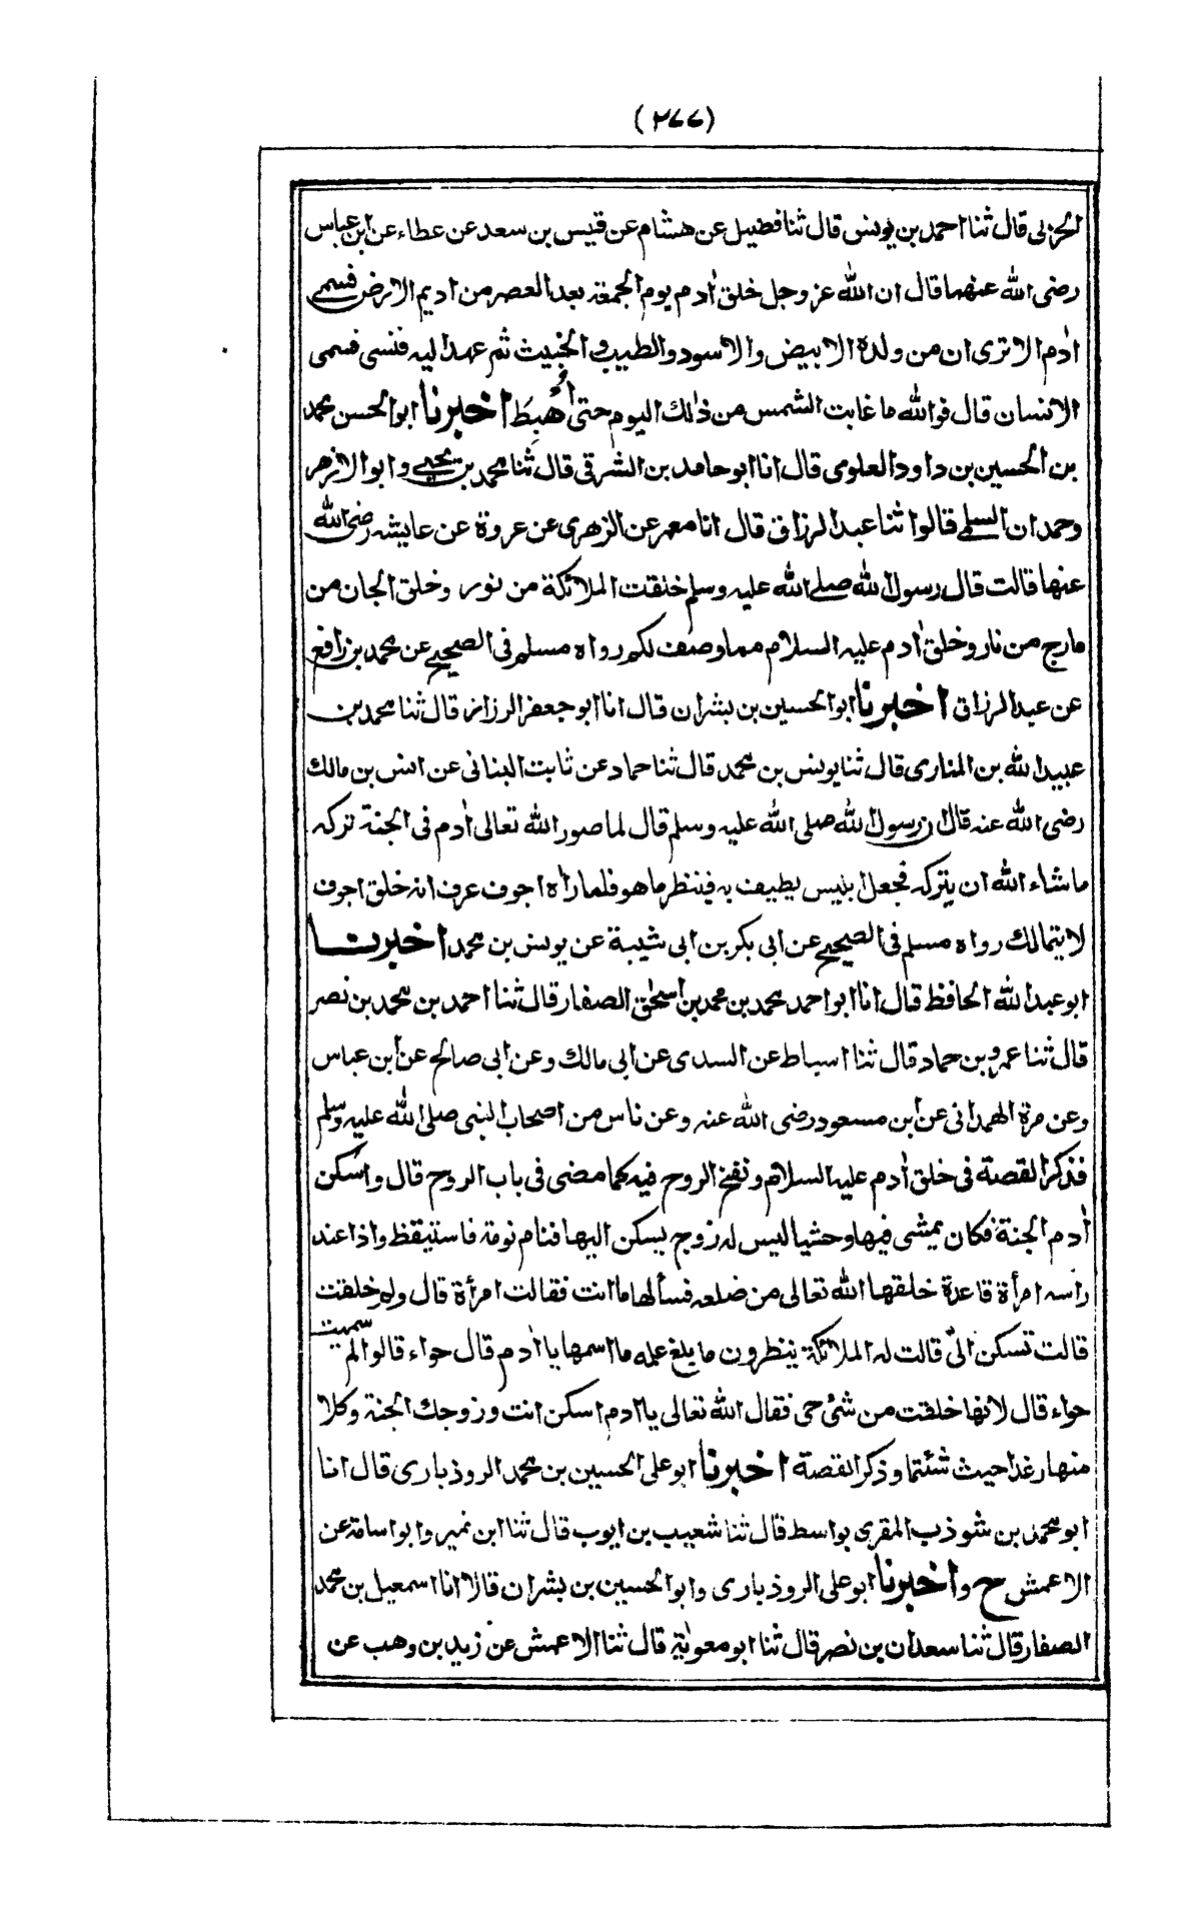 (٢٧٧)
الحربي قال ثنا احمد بن يونس قال ثنا فضيل عن هشام عن قيس بن سعد عن عطاء عن ابن عباس
رضى الله عنهما قال ان الله عز وجل خلق اٰدم يوم الجمعة بعد العصر من اديم الارض فسمى
اٰدم الا ترى ان من ولده الابيض والاسود والطيب والخبيث ثم عهد اليه فنسى فسمى
الانسان قال فوالله ما غابت الشمس من ذٰلك اليوم حتى اُهبِطَ اخبرنا ابو الحسن محمد
بن الحسين بن داود العلوى قال انا ابو حامد بن الشرقى قال ثنا محمد بن يحيى وابو الازهر
وحمدان السلمى قالوا ثنا عبد الرزاق قال انا معمر عن الزهرى عن عروة عن عايشه رضى الله
عنها قالت قال رسول الله صلى الله عليه وسلم خلقت الملائكة من نور وخلق الجان من
مارج من نار وخلق اٰدم عليه السلام مما وصف لكم رواه مسلم فى الصحيح عن محمد بن رافع
عن عبد الرزاق اخبرنا ابو الحسين بن بشران قال انا ابو جعفر الرزاز قال ثنا محمد بن
عبيد الله بن المنارى قال ثنا يونس بن محمد قال ثنا حماد عن ثابت البنانى عن انس بن مالك
رضى الله عنه قال ان رسول الله صلى الله عليه وسلم قال لما صور الله تعالى اٰدم فى الجنة تركه
ما شاء الله ان يتركه فجعل ابليس يطيف به فينظر ما هو فلما راٰه اجوف عرف انه خلق اجوف
لا يتمالك رواه مسلم فى الصحيح عن ابى بكر بن ابى شيبة عن يونس بن محمد اخبرنا
ابو عبد الله الحافظ قال انا ابو احمد محمد بن محمد بن اسحٰق الصفار قال ثنا احمد بن محمد بن نصر
قال ثنا عمرو بن حماد قال ثنا اسباط عن السدى عن ابى مالك وعن ابى صالح عن ابن عباس
وعن مرة الهمدانى عن ابن مسعود رضى الله عنه وعن ناس من اصحاب النبى صلى الله عليه وسلم
فذكر القصة فى خلق اٰدم عليه السلام ونفخ الروح فيه كما مضى فى باب الروح قال واسكن
اٰدم الجنة فكان يمشى فيها وحشيا ليس له زوج يسكن اليها فنام نومة فاستيقظ واذا عند
راسه امرأة قاعدة خلقها الله تعالى من ضلعه فسألها ما انت فقالت امرأة قال ولم خلقت
قالت تسكن الىّ قالت له الملائكة ينظرون ما يلغ علمه ما اسمها يا اٰدم قال حواء قالوا لم سميت
حواء قال لانها خلقت من شئ حى فقال الله تعالى يا اٰدم اسكن انت وزوجك الجنة وكلا
منها رغدا حيث شئتما وذكر القصة اخبرنا ابو على الحسين بن محمد الروذبارى قال انا
ابو محمد بن شوذب المقرى بواسط قال ثنا شعيب بن ايوب قال ثنا ابن نمير وابو اسامة عن
الاعمش ح واخبرنا ابو على الروذبارى وابو الحسين بن بشران قالا انا اسمعيل بن محمد
الصفار قال ثنا سعدان بن نصر قال ثنا ابو معوٰية قال ثنا الاعمش عن زيد بن وهب عن